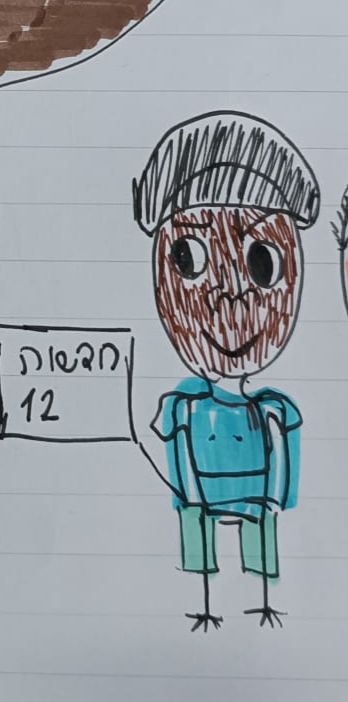 חדשות
12